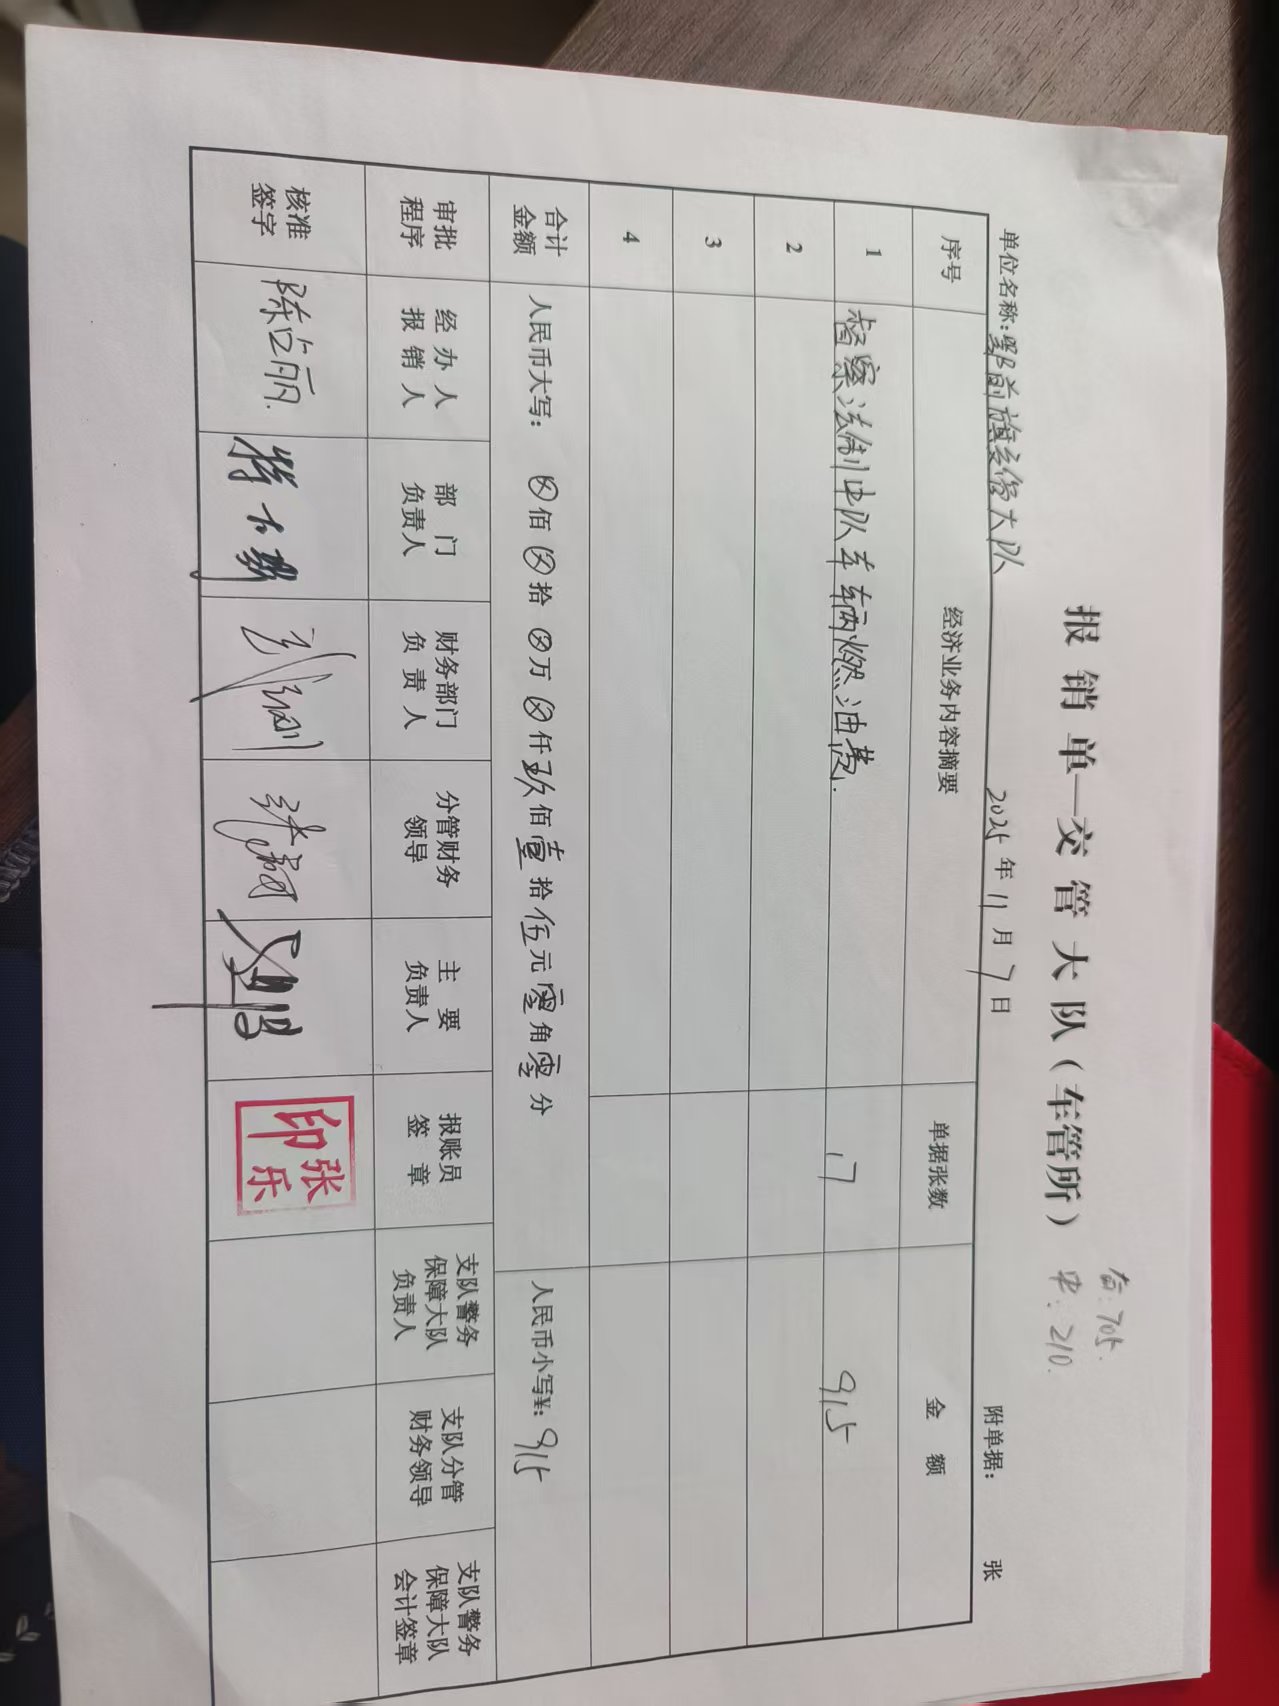 报销单—交管大队（车管所）
奋：705.
中：210.
单位名称：鄂前旗交管大队 2025年11月7日 附单据： 张
序号 经济业务内容摘要 单据张数 金额
1 督察法制中队车辆燃油费. 17 915
2
3
4
合计金额 人民币大写： ⊗佰⊗拾⊗万⊗仟玖佰壹拾伍元零角零分 人民币小写¥：915
审批程序 经办人报销人 部门负责人 财务部门负责人 分管财务领导 主要负责人 报账员签章 支队警务保障大队负责人 支队分管财务领导 支队警务保障大队会计签章
核准签字 张乐印